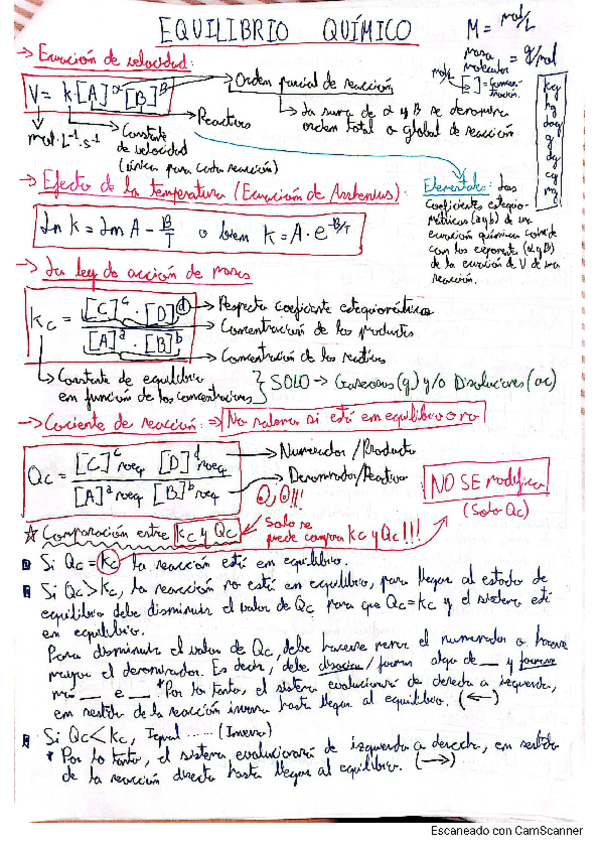 EQUILIBRIO QUÍMICO
M = mol/L
masa molecular = g/mol
mol/L [ ] = Concentración
kg
hg
dag
g
dg
cg
mg
→ Ecuación de velocidad:
V = k[A]^α [B]^β
→ Orden parcial de reacción
↳ La suma de α y β se denomina
orden total o global de reacción
→ Reactivos
mol·L⁻¹·s⁻¹
Constante
de velocidad
(única para cada reacción)
→ Efecto de la temperatura (Ecuación de Arrhenius):
Ln k = Ln A − B/T o bien k = A·e^(-B/T)
Elementales: Los
coeficientes estequio-
métricos (a y b) de una
ecuación química coincide
con los exponentes (α y β)
de la ecuación de V de una
reacción.
→ La ley de acción de masas
Kc = [C]^c · [D]^d / [A]^a · [B]^b
→ Respecta coeficiente estequiométrico
→ Concentracion de los productos
→ Concentracion de los reactivos
↳ Constante de equilibrio
en función de las concentraciones
} SOLO → Gaseosos (g) y/o Disoluciones (ac)
→ Cociente de reacción: ⇒ No sabemos si está em equilibrio o no
Qc = [C]^c noeq [D]^d noeq / [A]^a noeq [B]^b noeq
→ Numerador / Producto
→ Denominador / Reactivo
NO SE modifica
(Solo Qc)
☆ Comparación entre Kc y Qc
Solo se
puede compara Kc y Qc!!!
Si Qc = Kc la reacción está en equilibrio.
Si Qc > Kc, la reacción no está en equilibrio, para llegar al estado de
equilibrio debe disminuir el valor de Qc para que Qc = Kc y el sistema esté
en equilibrio.
Para disminuir el valor de Qc, debe hacerse menor el numerador o hacerse
mayor el denominador. Es decir, debe disociar / formar algo de __ y formarse
más __ e __. *Por lo tanto, el sistema evolucionará de derecha a izquierda,
en sentido de la reacción inversa hasta llegar al equilibrio. (←)
Si Qc < Kc, Igual ..... (Inverso)
* Por lo tanto, el sistema evolucionará de izquierda a derecha, en sentido
de la reacción directa hasta llegar al equilibrio. (→)
Escaneado con CamScanner